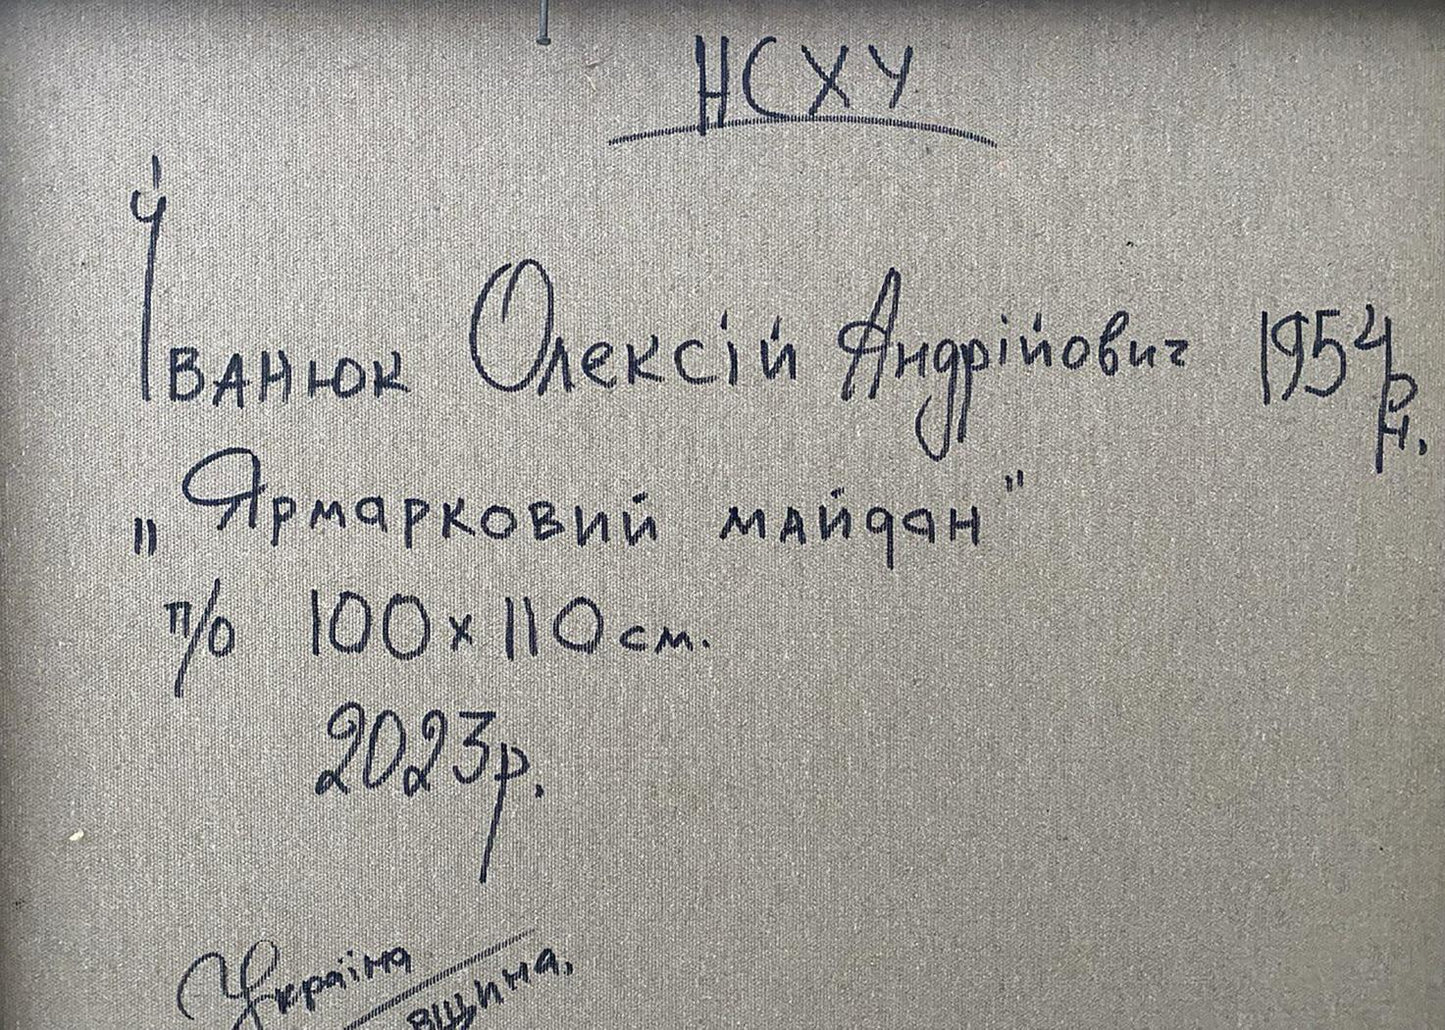 НСХУ
Іванюк Олексій Андрійович 1954 р.н.
„Ярмарковий майдан"
п/о 100х110 см.
2023р.
Україна